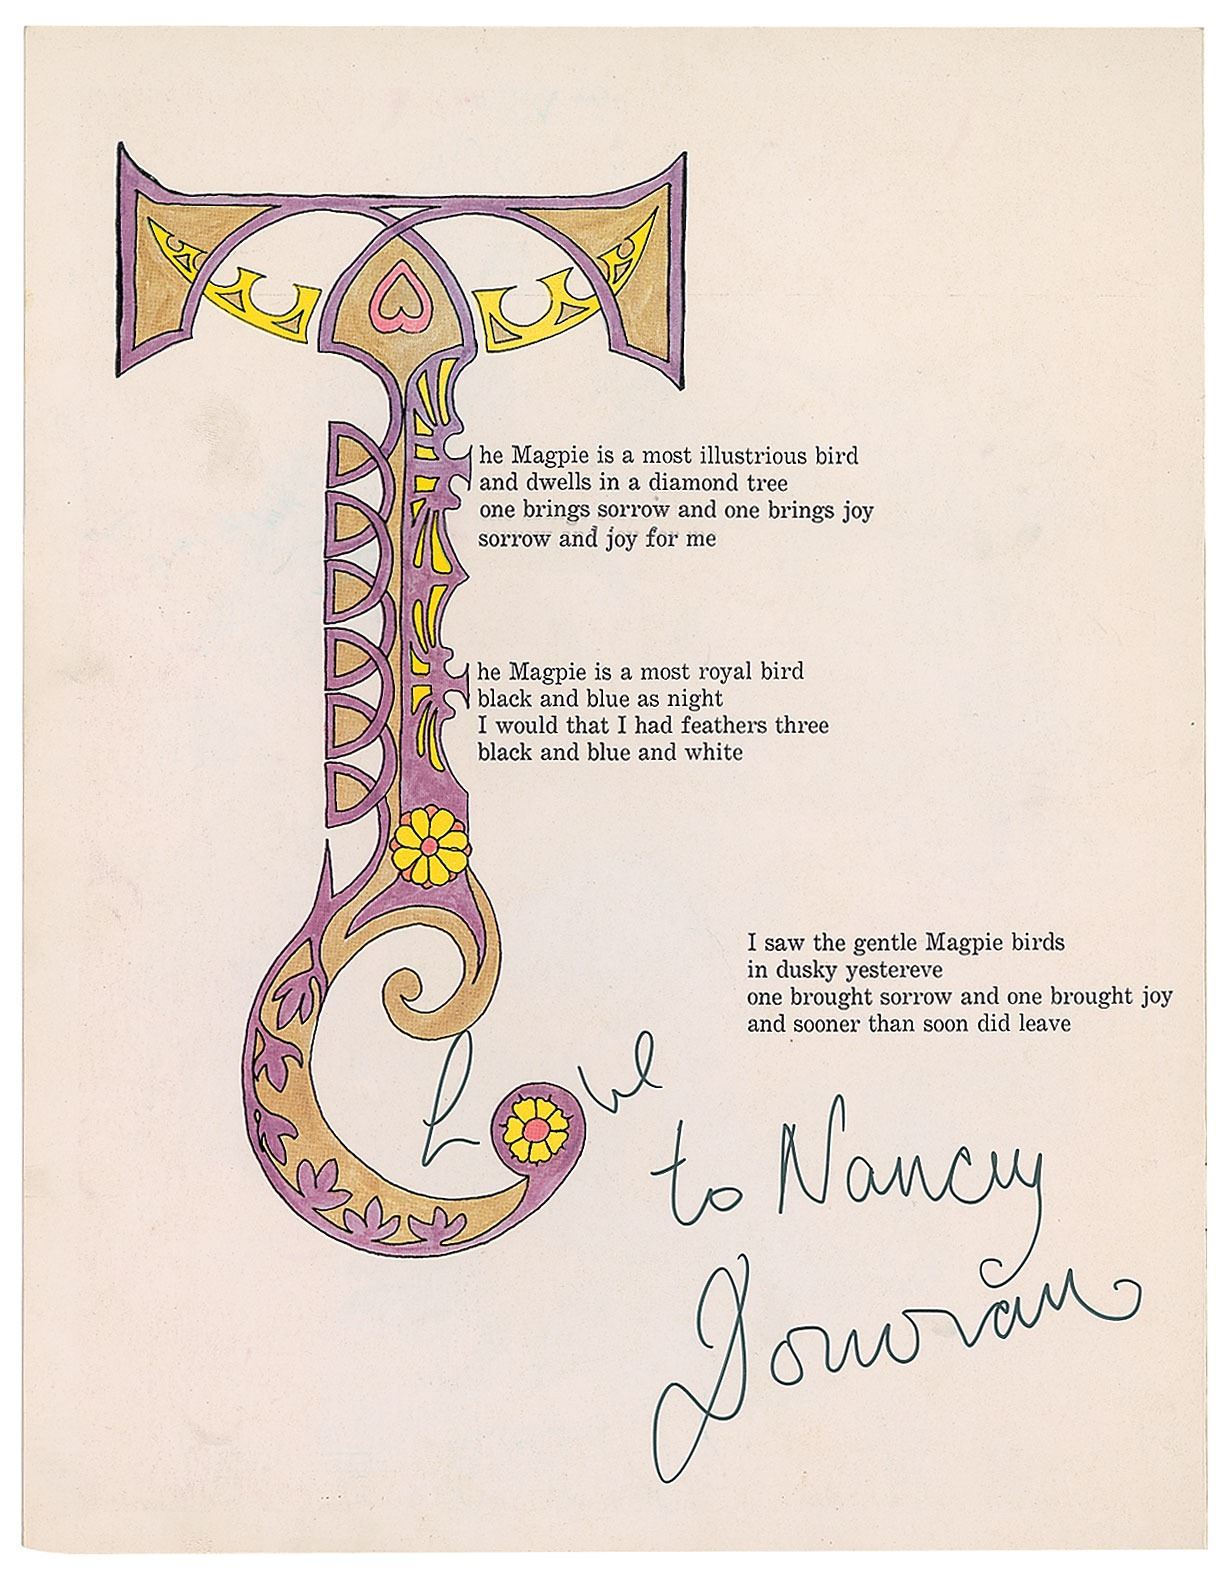 The Magpie is a most illustrious bird
and dwells in a diamond tree
one brings sorrow and one brings joy
sorrow and joy for me
The Magpie is a most royal bird
black and blue as night
I would that I had feathers three
black and blue and white
I saw the gentle Magpie birds
in dusky yestereve
one brought sorrow and one brought joy
and sooner than soon did leave
Love
to Nancy
Donovan